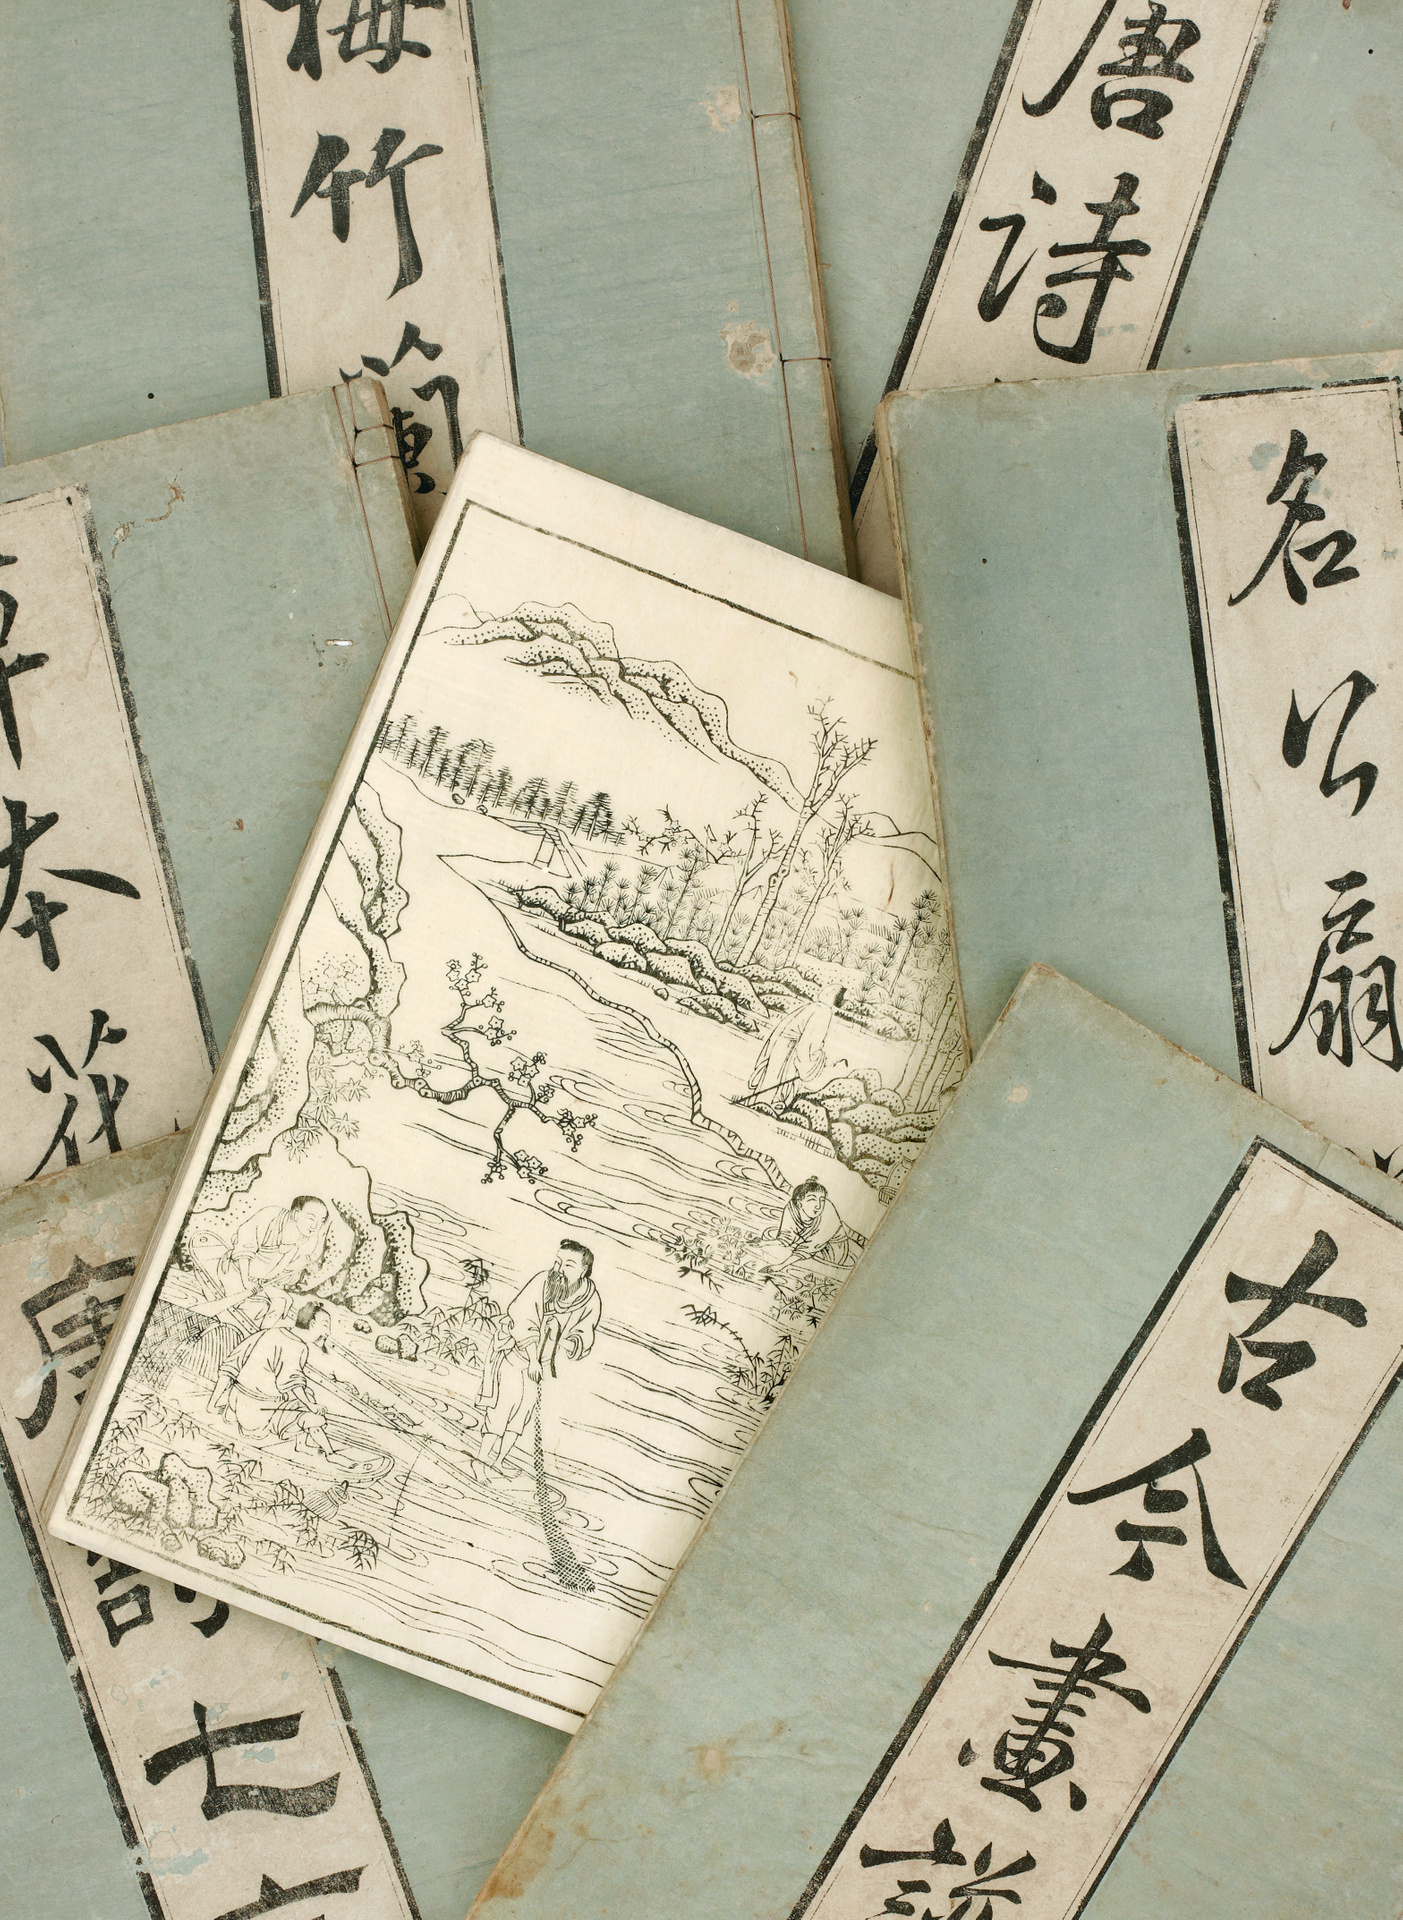 梅竹蘭
唐诗
名公扇
草本花
唐詩七言
古今畫譜